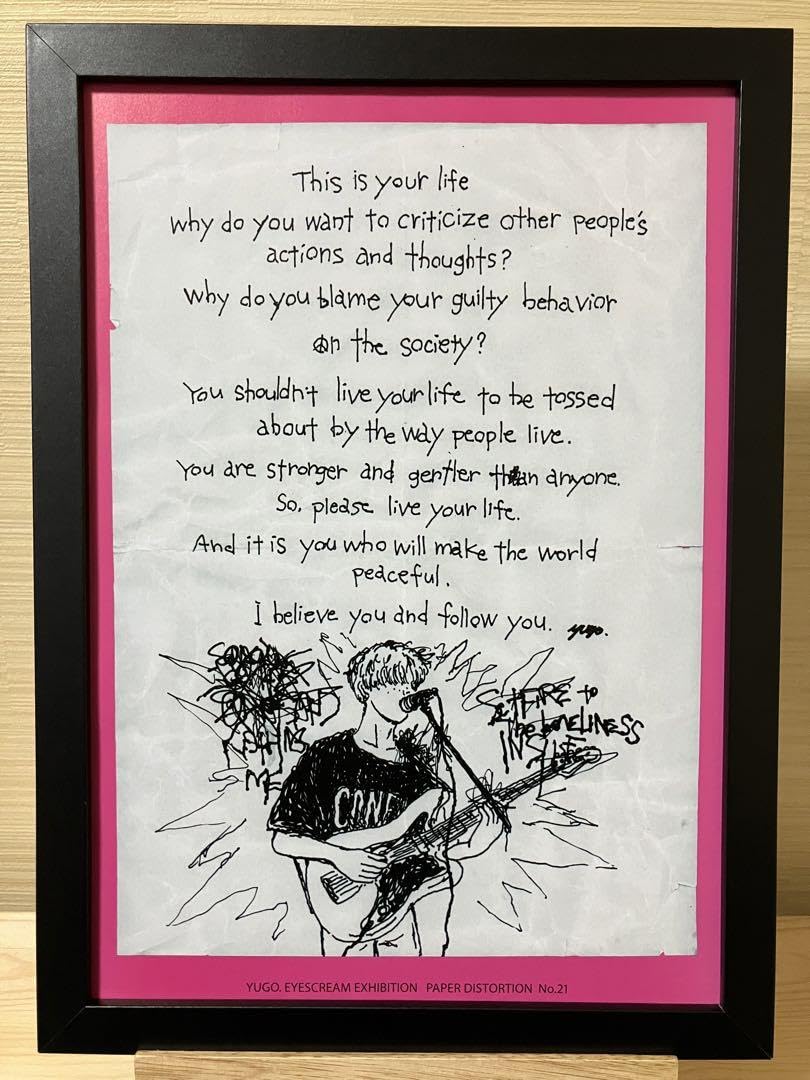 This is your life
why do you want to criticize other people's
actions and thoughts?
why do you blame your guilty behavior
on the society?
You shouldn't live your life to be tossed
about by the way people live.
You are stronger and gentler than anyone.
So, please live your life.
And it is you who will make the world
peaceful.
I believe you and follow you. yugo.
SET FIRE to
the LONELINESS
IN
ME
CONE
YUGO. EYESCREAM EXHIBITION PAPER DISTORTION No.21